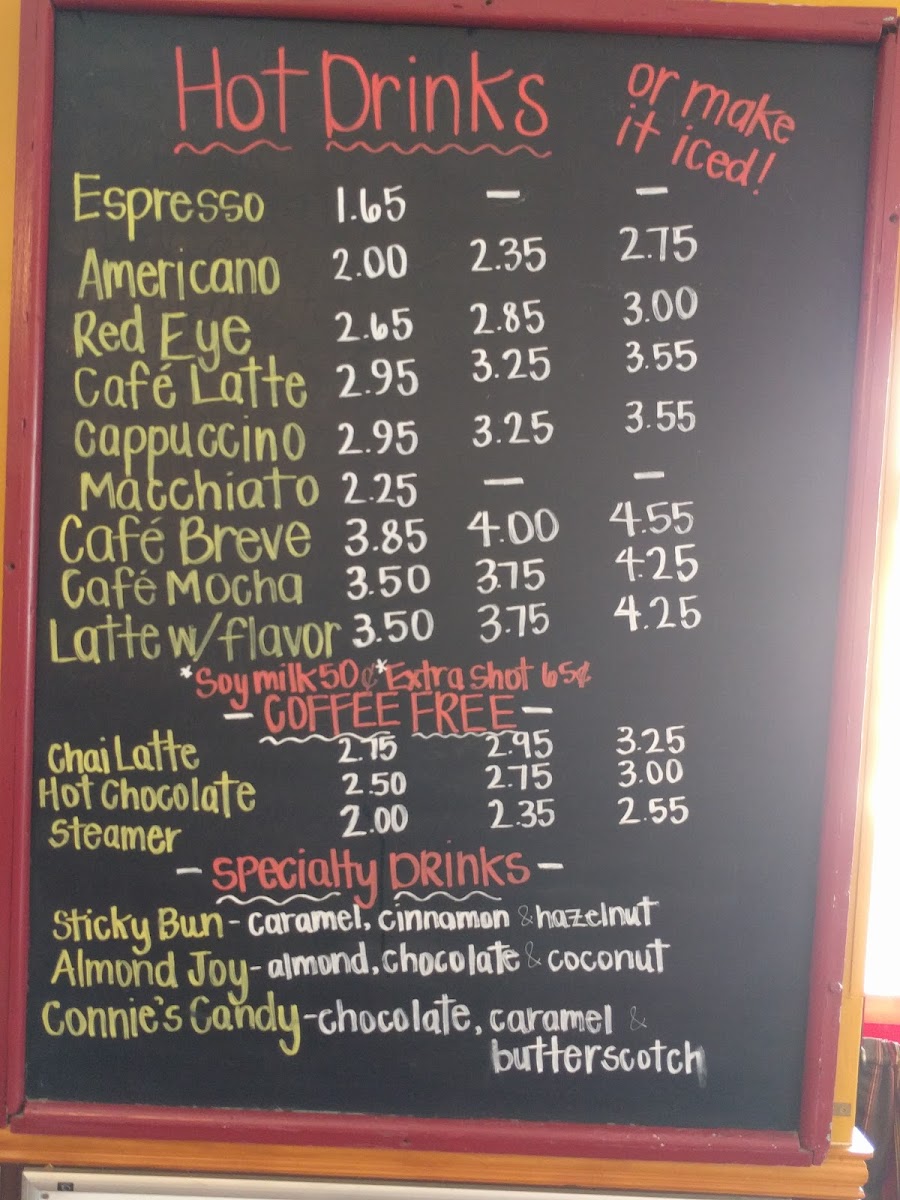 Hot Drinks or make it iced!
Espresso 1.65 — —
Americano 2.00 2.35 2.75
Red Eye 2.65 2.85 3.00
Café Latte 2.95 3.25 3.55
Cappuccino 2.95 3.25 3.55
Macchiato 2.25 — —
Café Breve 3.85 4.00 4.55
Café Mocha 3.50 3.75 4.25
Latte w/flavor 3.50 3.75 4.25
*Soy milk 50¢ *Extra Shot 65¢
— COFFEE FREE —
Chai Latte 2.75 2.95 3.25
Hot Chocolate 2.50 2.75 3.00
Steamer 2.00 2.35 2.55
— Specialty DRINKS —
Sticky Bun - caramel, cinnamon & hazelnut
Almond Joy - almond, chocolate & coconut
Connie's Candy - chocolate, caramel &
butterscotch